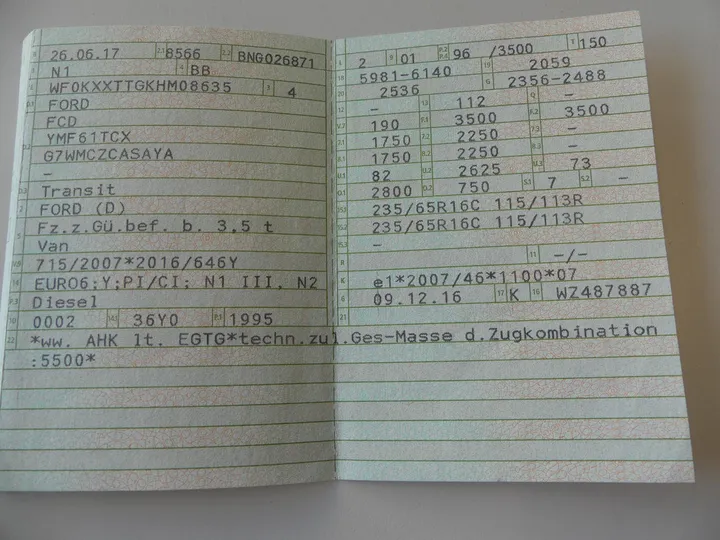 26.06.17 2.1 8566 2.2 BNG026871
N1 4 BB
WF0KXXTTGKHM08635 3 4
FORD
FCD
YMF61TCX
G7WMCZCASAYA
–
Transit
FORD (D)
Fz.z.Gü.bef. b. 3,5 t
Van
715/2007*2016/646Y
EURO6;Y;PI/CI; N1 III, N2
Diesel
0002 36Y0 1995
*ww. AHK lt. EGTG*techn.zul.Ges-Masse d.Zugkombination
:5500*
2 9 01 96 /3500 T 150
18 5981-6140 19 2059
20 2536 G 2356-2488
12 – 13 112 Q –
190 3500 3500
1750 2250 –
1750 2250 –
82 2625 U.3 73
2800 750 S.1 7 S.2 –
235/65R16C 115/113R
235/65R16C 115/113R
–
R 11 –/–
K e1*2007/46*1100*07
6 09.12.16 17 K 16 WZ487887
21